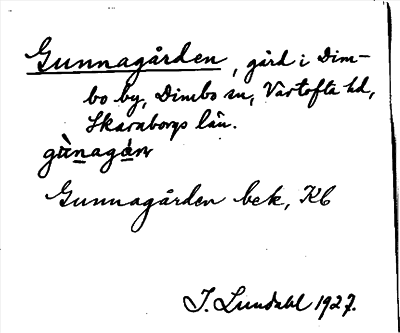 Gunnagården, gård i Dim-
bo by, Dimbo sn, Vartofta hd,
Skaraborgs län.
gùnagán
Gunnagården bek, Kb
I. Lundahl 1927.